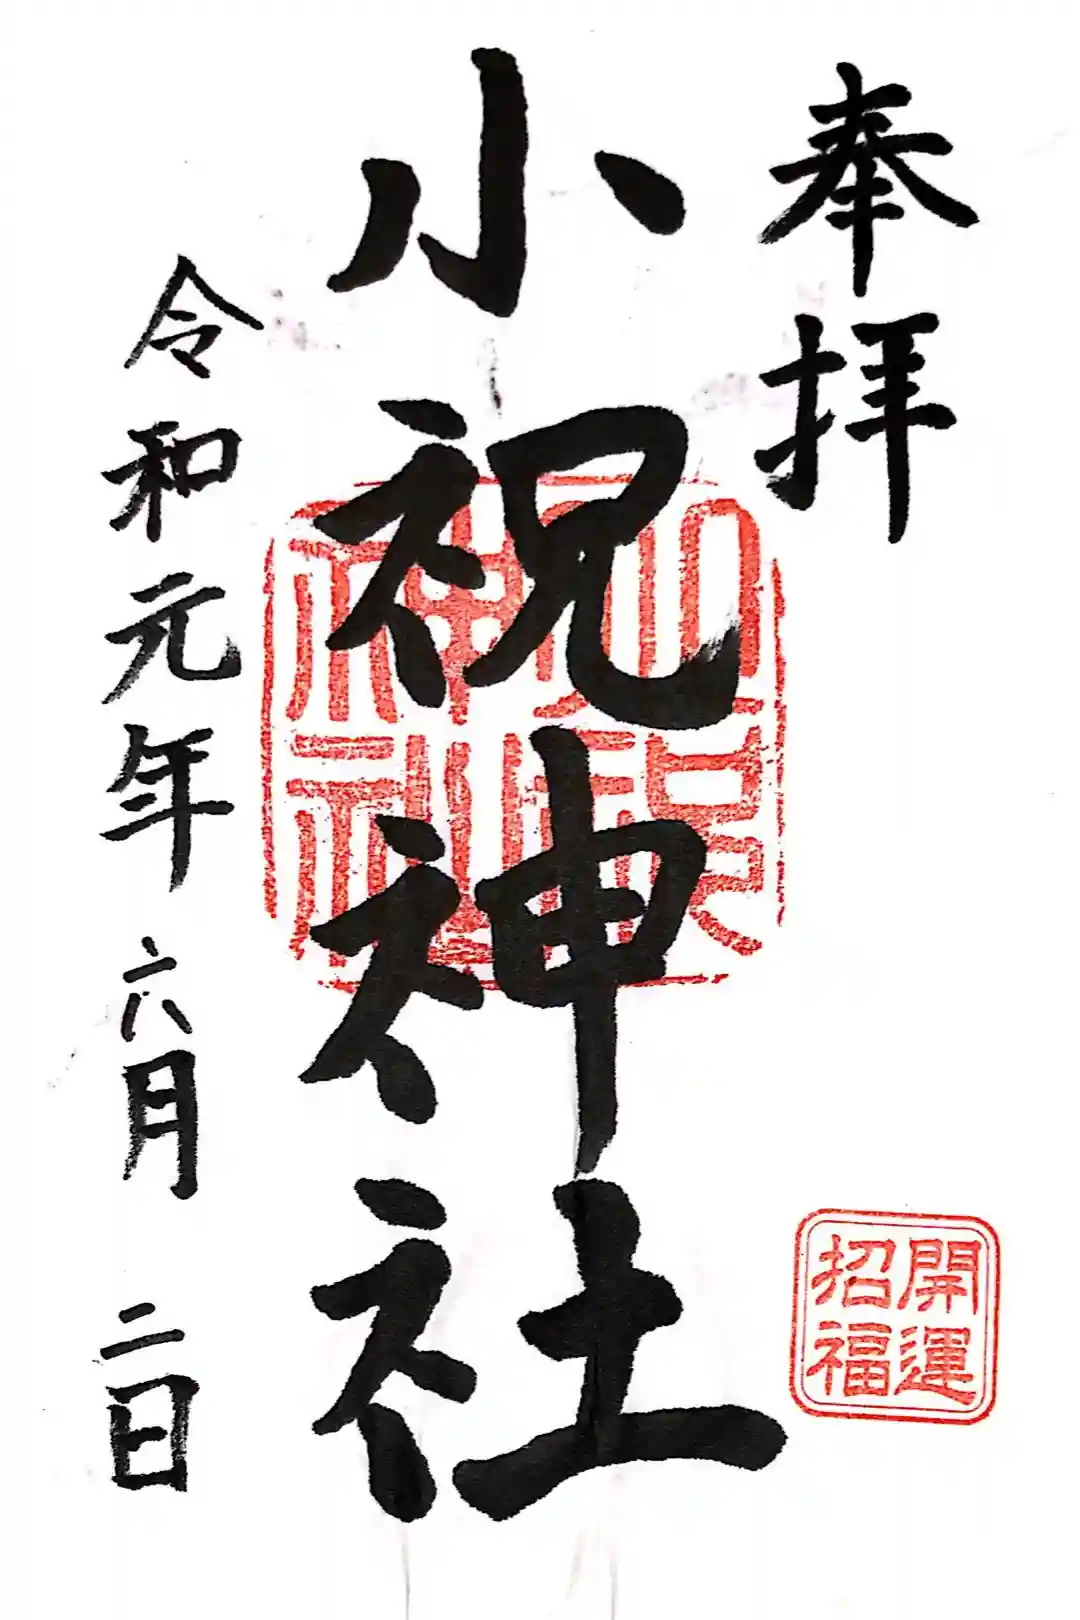 奉拝
小祝神社
令和元年六月二日
開運
招福